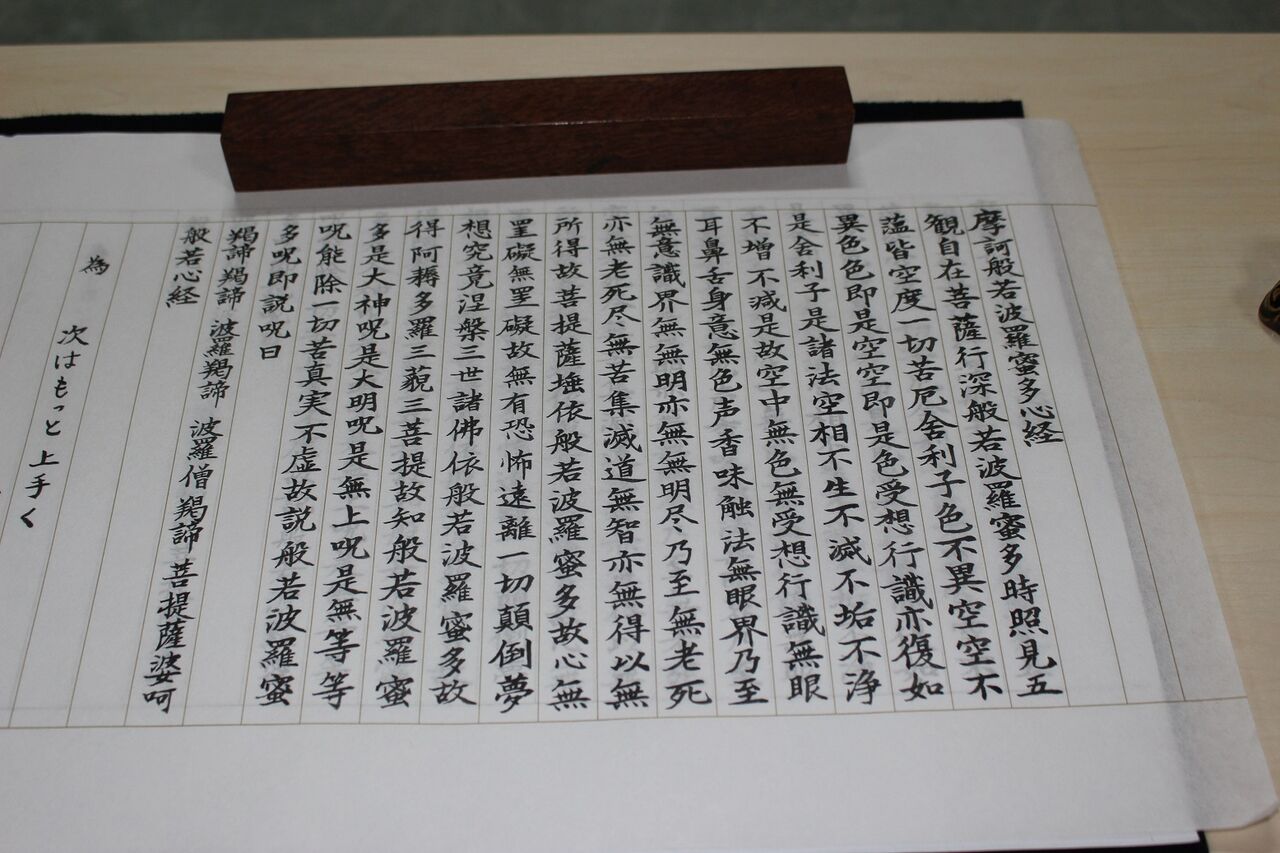 摩訶般若波羅蜜多心経
観自在菩薩行深般若波羅蜜多時照見五
蕴皆空度一切苦厄舎利子色不異空空不
異色色即是空空即是色受想行識亦復如
是舎利子是諸法空相不生不滅不垢不浄
不増不減是故空中無色無受想行識無眼
耳鼻舌身意無色声香味触法無眼界乃至
無意識界無無明亦無無明尽乃至無老死
亦無老死尽無苦集滅道無智亦無得以無
所得故菩提薩埵依般若波羅蜜多故心無
罣礙無罣礙故無有恐怖遠離一切顛倒夢
想究竟涅槃三世諸佛依般若波羅蜜多故
得阿耨多羅三藐三菩提故知般若波羅蜜
多是大神呪是大明呪是無上呪是無等等
呪能除一切苦真実不虚故説般若波羅蜜
多呪即説呪曰
羯諦羯諦 波羅羯諦 波羅僧羯諦菩提薩婆呵
般若心経
為
次はもっと上手く